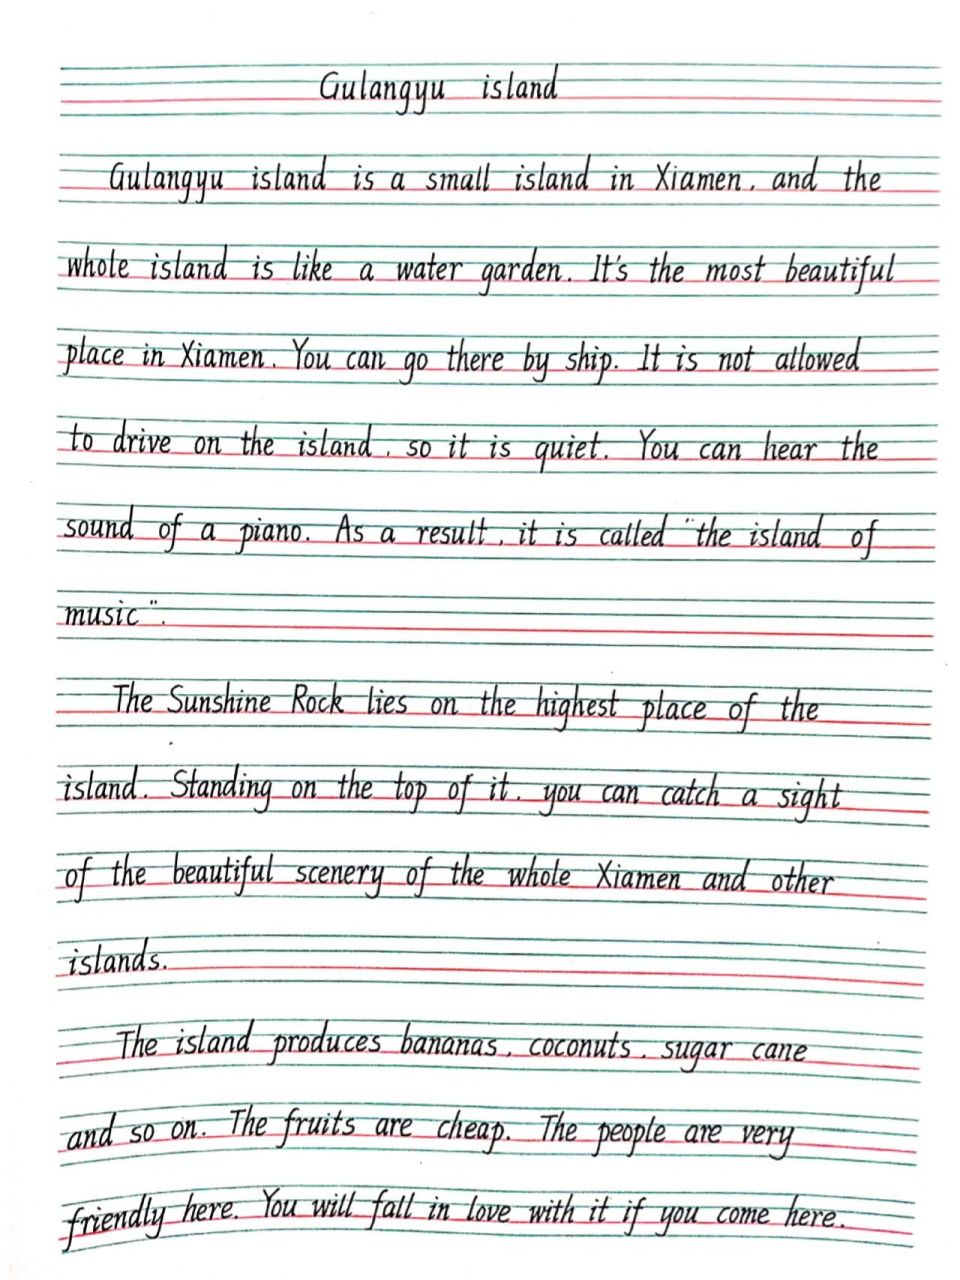 Gulangyu island
Gulangyu island is a small island in Xiamen, and the
whole island is like a water garden. It's the most beautiful
place in Xiamen. You can go there by ship. It is not allowed
to drive on the island, so it is quiet. You can hear the
sound of a piano. As a result, it is called "the island of
music".
The Sunshine Rock lies on the highest place of the
island. Standing on the top of it, you can catch a sight
of the beautiful scenery of the whole Xiamen and other
islands.
The island produces bananas, coconuts, sugar cane
and so on. The fruits are cheap. The people are very
friendly here. You will fall in love with it if you come here.